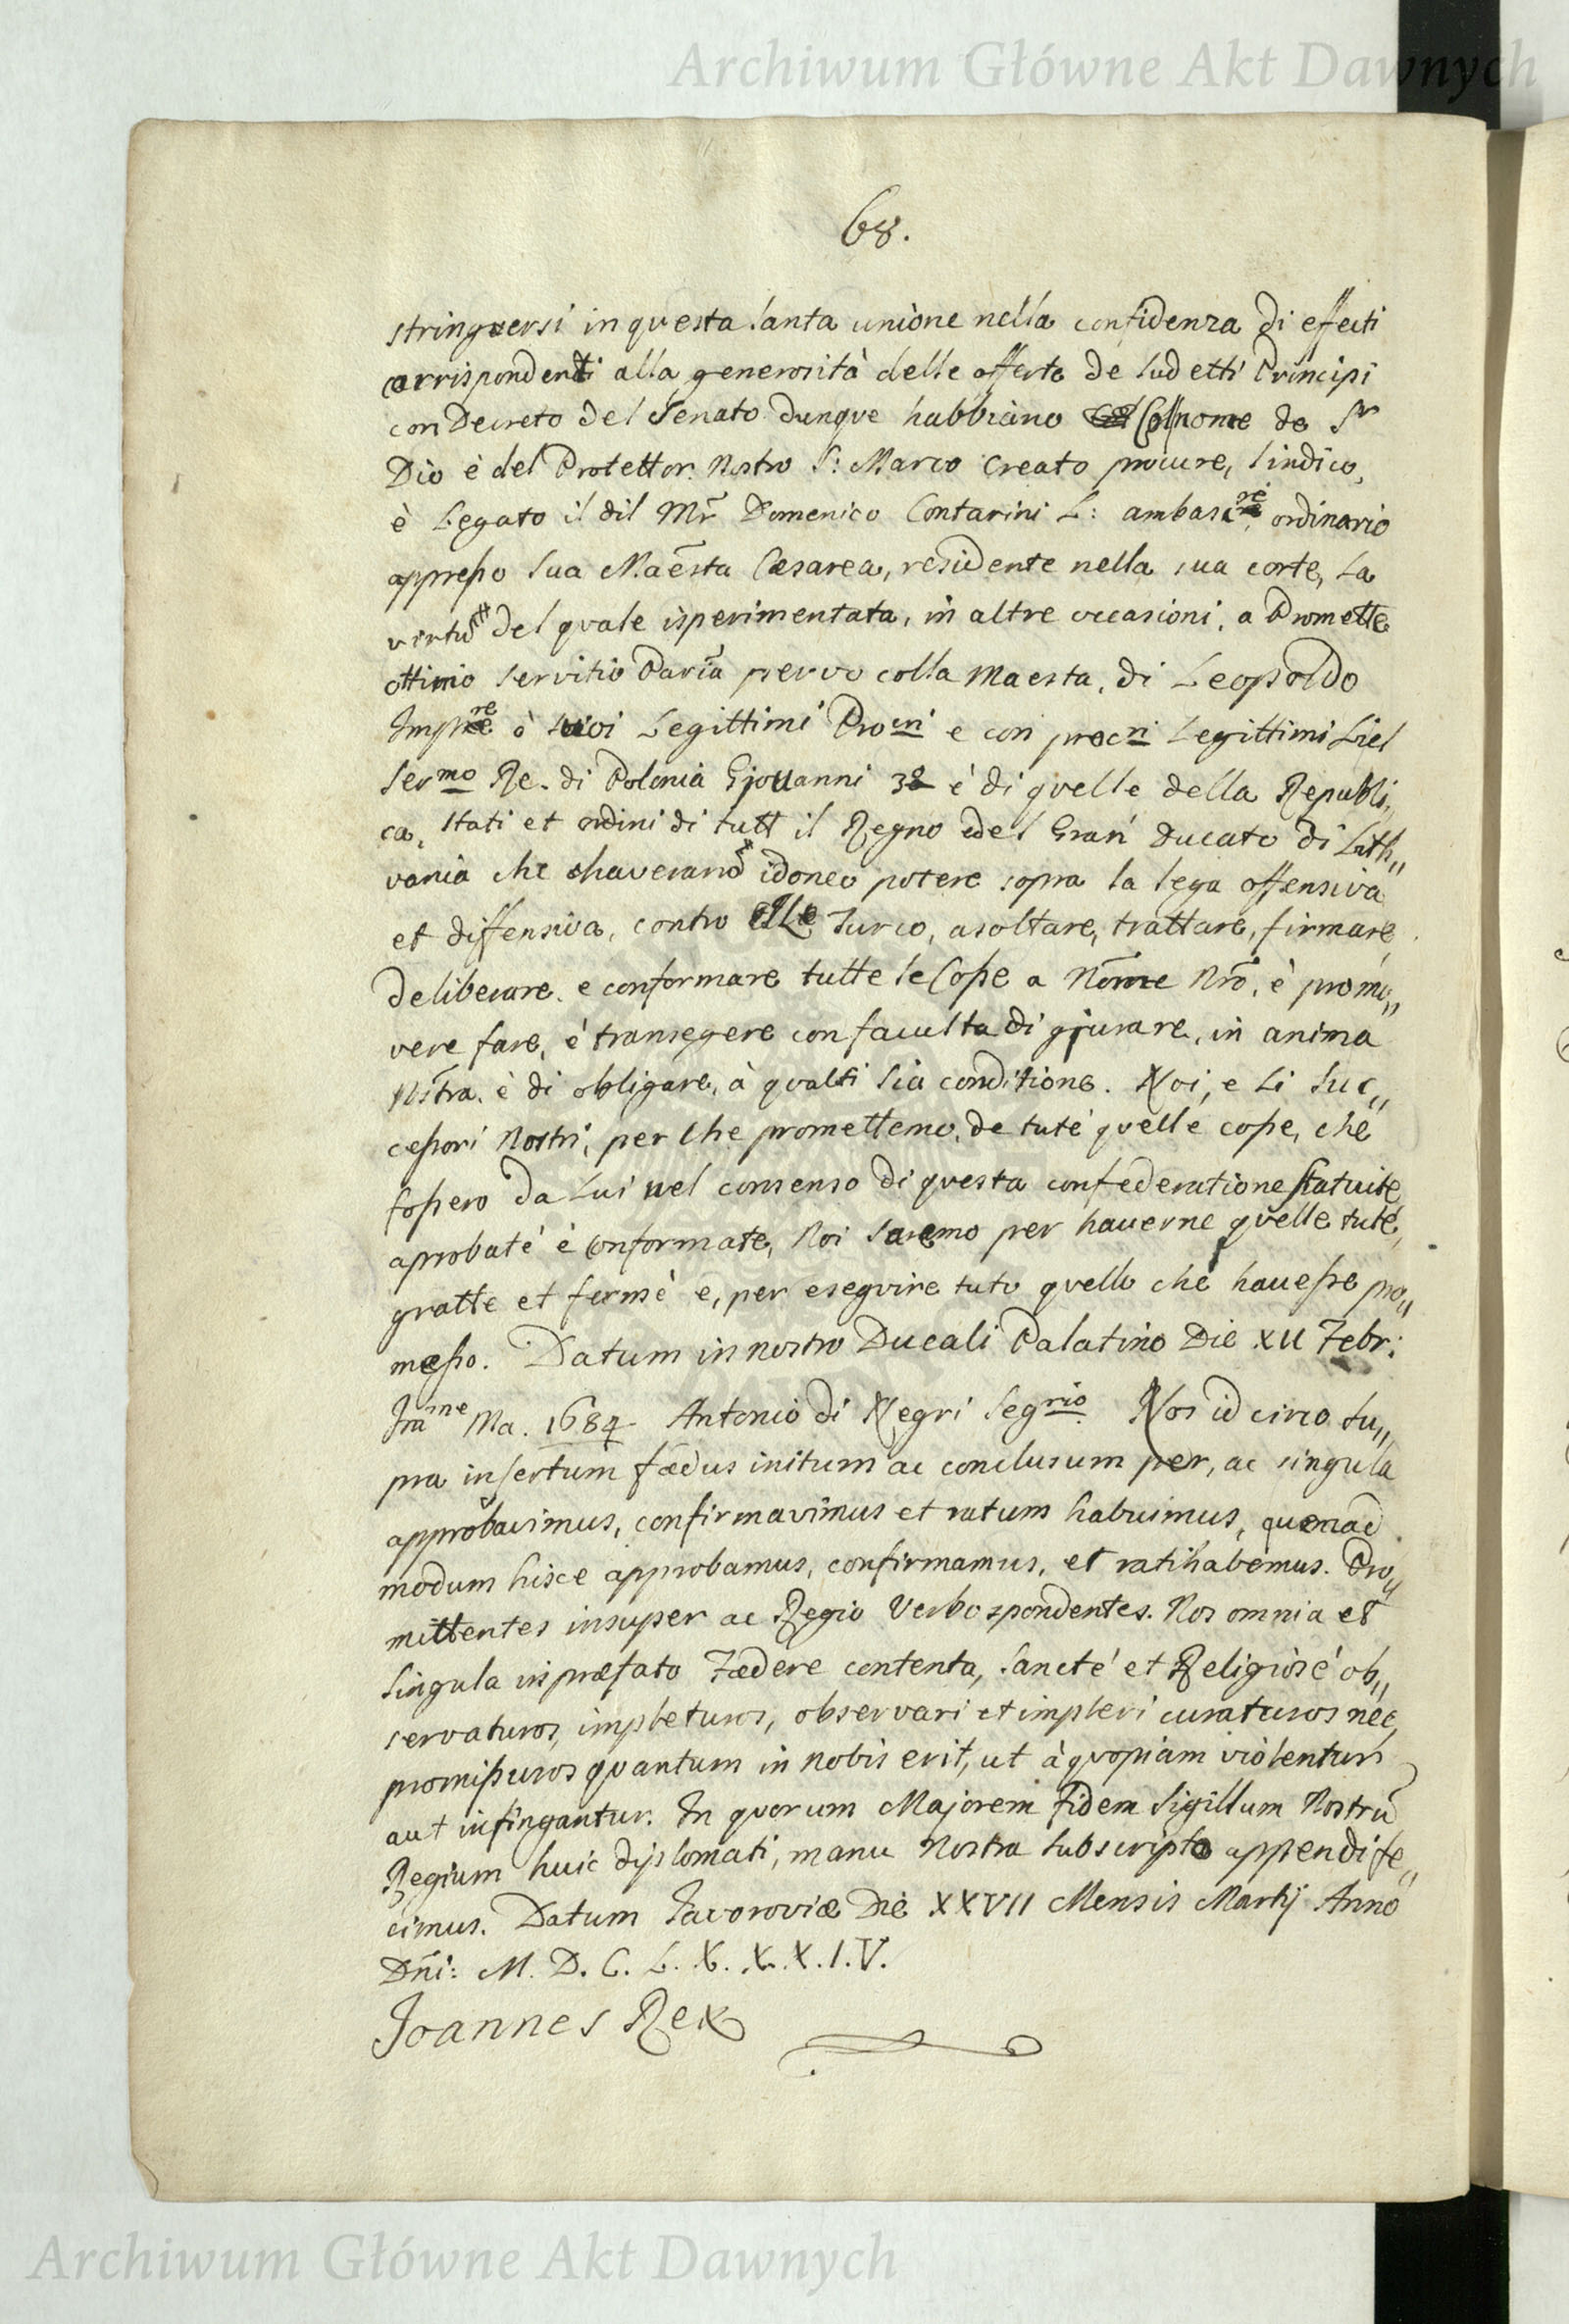 Archiwum Główne Akt Dawnych
68.
stringversi in questa santa unione nella confidenza di effecti
corrispondenti alla generosità delle offerte de sudetti Principi
con Decreto del Senato dunque habbiano Col nome de Sr
Dio è del Protettor Nostro S: Marco Creato procure, sindico,
è Legato il dil Mr Domenico Contarini L: ambasre ordinario
appresso sua Maesta Cæsarea, residente nella sua corte, La
virtu del quale isperimentata, in altre occasioni, a Promette
ottimo servitio Paria pervo colla Maesta, di Leopoldo
Impre ò suoi Legittimi Procni e con procni Legittimi
sermo Re di Polonia Giouanni 3º è di quelle della Republi,,
ca, stati et ordini di tutt il Regno edel Gran Ducato di Lith,,
vania che haverano idoneo potere sopra la lega offensiva
et diffensiva, contro Turco, asoltare, trattare, firmare,
deliberare e conformare tutte le Cose a Nome Nrõ, è promo,,
vere fare, è transegere con faculta di giurare, in anima
Nostra è di obligare, à qualsi sia conditione. Noi, e Li suc,,
cessori Nostri, per che promettemo, de tuté quelle cosse, ché
fossero da Lui nel consenso di questa confederatione statuite
aprobaté è conformate, Noi saremo per hauerne quelle tuté,
gratte et fermè e, per eseguire tuto quello ché hauesse pro,,
messo. Datum in nostro Ducali Palatino Die XII Febr:
Inãne Ma. 1684 Antonio di Negri Segrio Nos id circo su,,
pra insertum fædus initum ac conclusum per, ac singula
approbavimus, confirmavimus et ratum habuimus, quemad
modum hisce approbamus, confirmamus, et ratihabemus. Pro,,
mittentes insuper ac Regio Verbo spondentes. Nos omnia et
singula in præfato Fædere contenta, sancté et Religiosé ob,,
servaturos, impleturos, observari et impleri curaturos nec,
promissuros quantum in nobis erit, ut à quopiam violentur
aut infingantur. In quorum Majorem fidem Sigillum Nostrũ
Regium huic diplomati, manu Nostra subscripto appendi fe,,
cimus. Datum Javoroviæ Die XXVII Mensis Martij Anno
Dñi: M. D. C. L. X. X. X. I. V.
Joannes Rex
Archiwum Główne Akt Dawnych